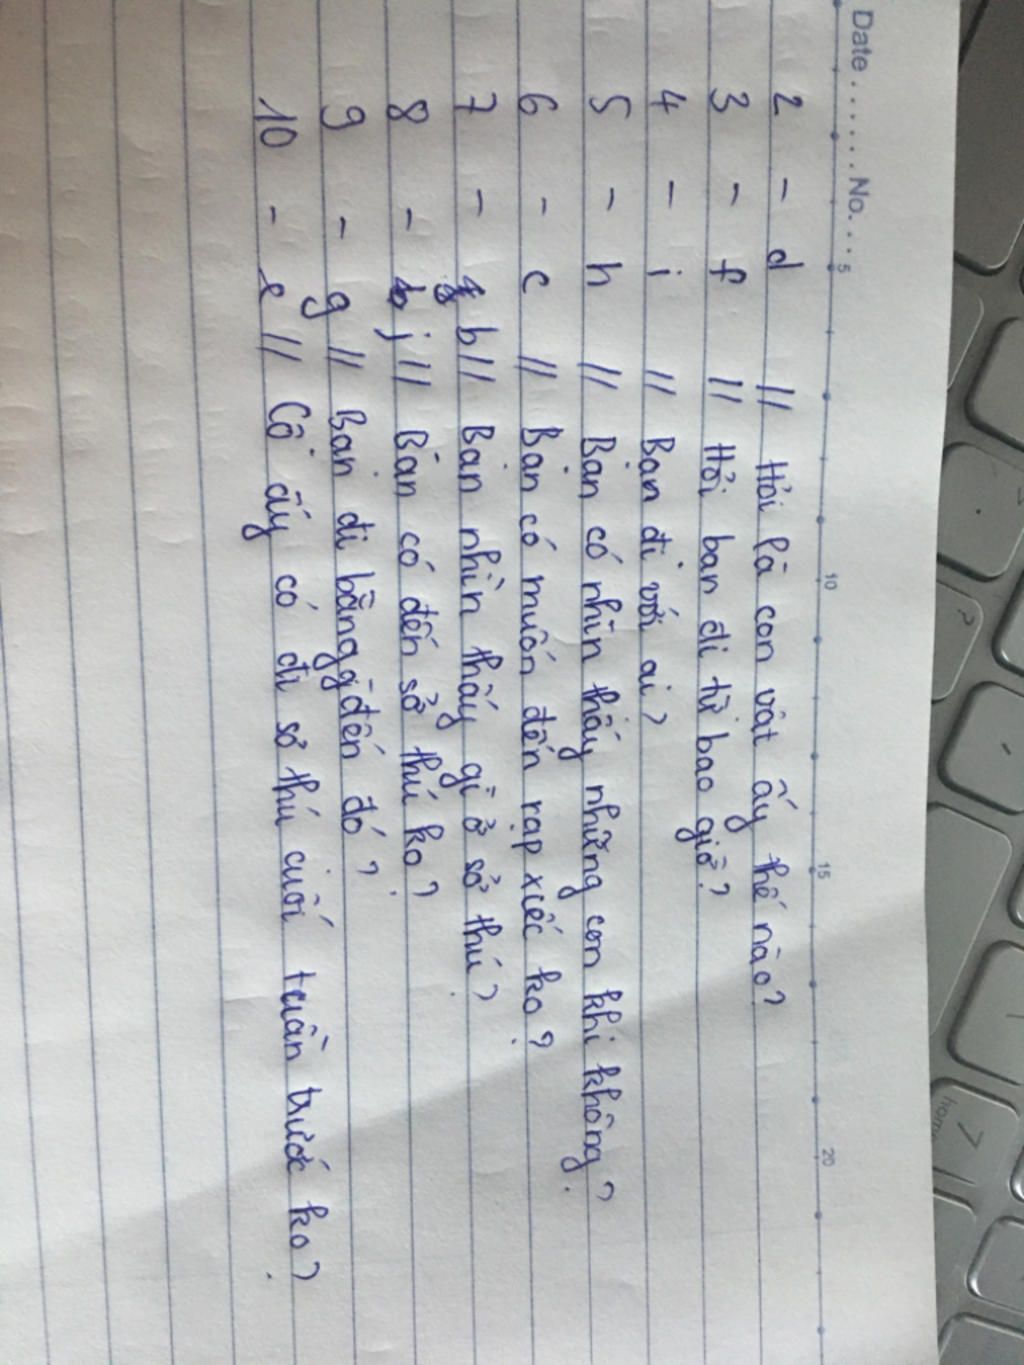 Date ....... No. ...
5 10 15 20
2 - d // Hỏi là con vật ấy thế nào?
3 - f // Hỏi bạn đi từ bao giờ?
4 - i // Bạn đi với ai?
5 - h // Bạn có nhìn thấy những con khỉ không?
6 - c // Bạn có muốn đến rạp xiếc ko?
7 - b // Bạn nhìn thấy gì ở sở thú?
8 - j // Bạn có đến sở thú ko?
9 - g // Bạn đi bằng gì đến đó?
10 - e // Cô ấy có đi sở thú cuối tuần trước ko?
7
home